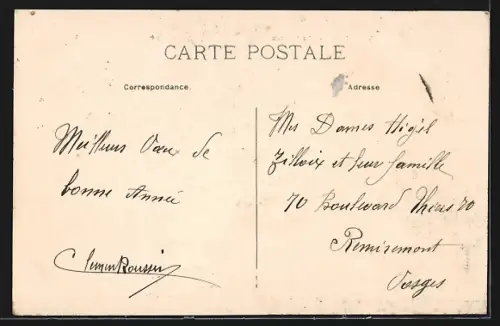 CARTE POSTALE
Correspondance
Adresse
Meilleurs Vœux de
bonne Année
Mes Dames Higel
et leur famille
70 Boulevard Thiers 70
Remiremont
Vosges